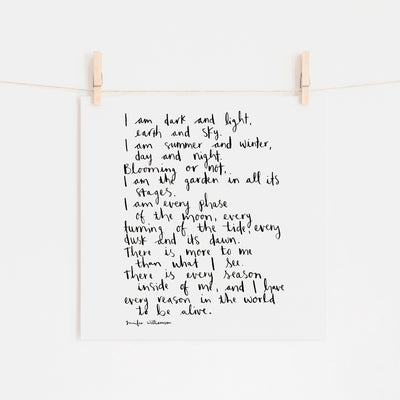 I am dark and light,
earth and sky.
I am summer and winter,
day and night.
Blooming or not,
I am the garden in all its
stages.
I am every phase
of the moon, every
turning of the tide, every
dusk and its dawn.
There is more to me
than what I see.
There is every season
inside of me, and I have
every reason in the world
to be alive.
Jennifer Williamson